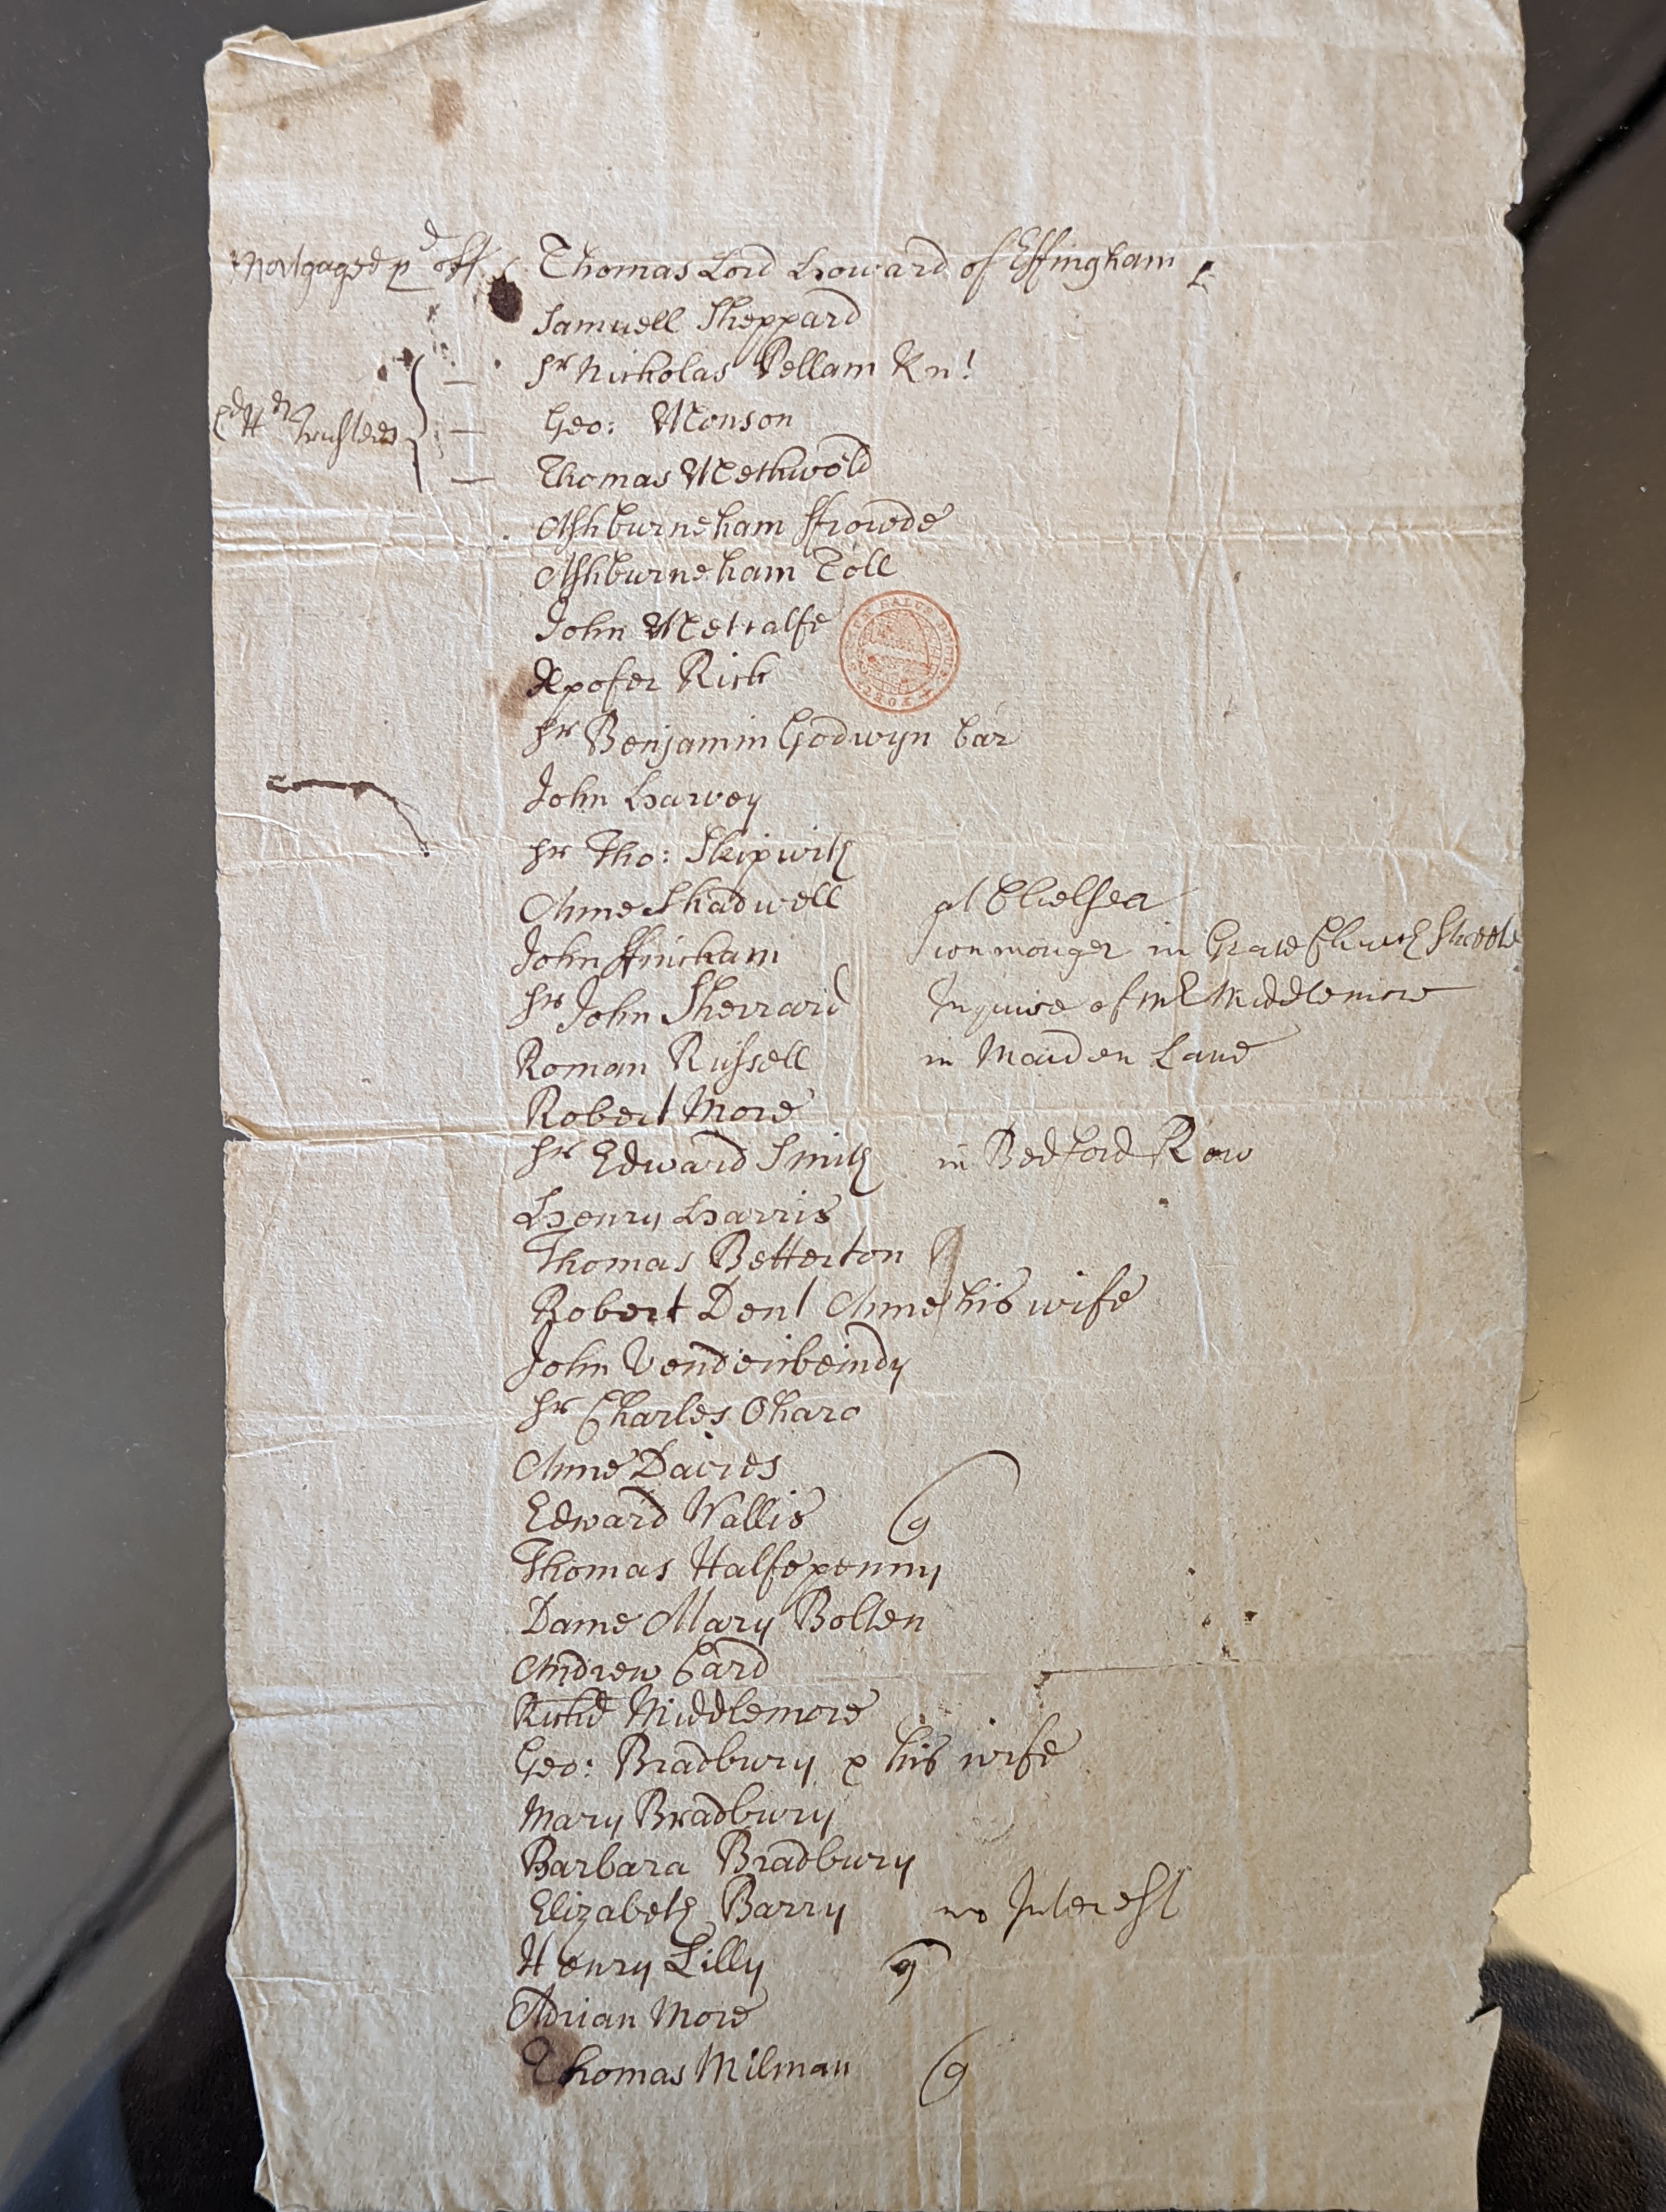 Mortgaged pd off Thomas Lord Howard of Effingham
Samuell Sheppard
Sr Nicholas Pellam Knt
Geo: Monson
Trustees
Thomas Methwold
Ashburneham ffrowde
Ashburneham Toll
John Metcalfe
Xpofer Rich
Sr Benjamin Godwyn Bar
John Harvey
Sr Tho: Skipwith
Anne Shadwell at Chelsea
John ffincham Ironmonger in Grace Church Streete
Sr John Sherrard Inquire of Mr Middlemore
Roman Russell in Maiden Lane
Robert More
Sr Edward Smith in Bedford Row
Henry Harris
Thomas Betterton
Robert Dent Anne his wife
John Vendenbeindy
Sr Charles Oharo
Anne Davies
Edward Wallis
Thomas Halfepenny
Dame Mary Bolten
Andrew Card
Richd Middlemore
Geo: Bradbury & his wife
Mary Bradbury
Barbara Bradbury
Elizabeth Barry no Interest
Henry Lilly
Adrian More
Thomas Milman